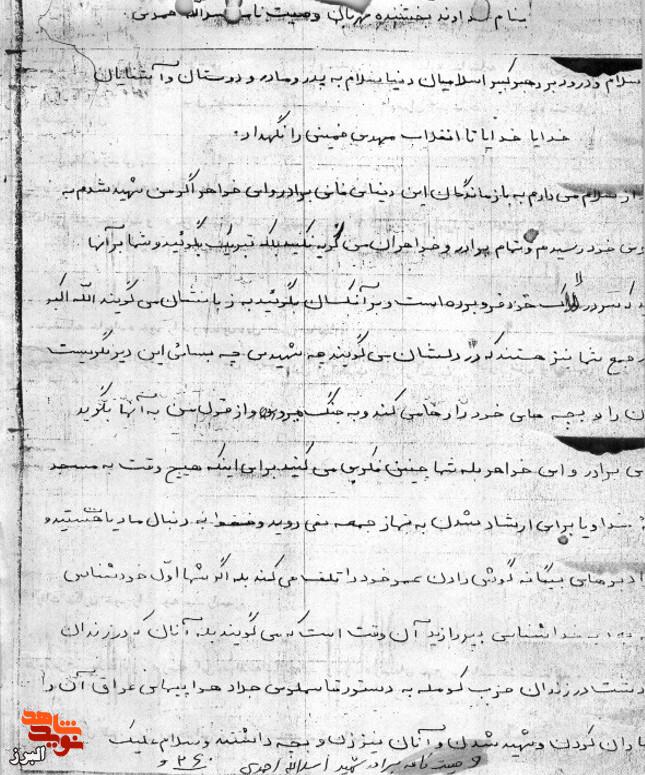 بنام خداوند بخشنده مهربان وصیت نامه اسدالله احمدی
سلام و درود بر رهبر کبیر اسلامیان دنیا سلام به پدر و مادر و دوستان و آشنایان
خدایا خدایا تا انقلاب مهدی خمینی را نگهدار.
سلام می دارم به بازماندگان این دنیای فانی برادر وای خواهر اگر من شهید شدم به
خود رسیدم و تمام برادر و خواهران من گریه نکنید بلکه تبریک بگوئید و شما بر آنها
که سر در لاک خود فرو برده است و بر آنکسان بگوئید به زبانشان می گویند الله اکبر
جمع شما نیز هستند که در دلشان می گویند چه شهیدی چه بسائی این دیگر نیست
را و بچه های خود را رها می کند و به جنگ میرود و از قول من به آنها بگوید
برادر و ای خواهر بله شما چنین فکری می کنید برای اینکه هیچ وقت به مسجد
و یا برای ارشاد شدن به نماز جمعه نمی روید و فقط به دنبال مادیات هستید و
رادیوهای بیگانه گوش دادن عمر خود را تلف می کند بله اگر شما اول خودشناسی
به خداشناسی بپردازید آن وقت است که می گویند بله آنان که در زندان
در زندان حزب کومله به دستور قاسملوی جلاد هواپیمای عراقی آن را
کردن و شهید شدن و آنان نیز زن و بچه داشتند وسلام علیک
وصیت نامه برادر شهید اسدالله احمدی
شاهد
نوید
البرز